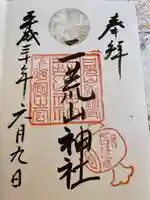 奉拝
二荒山神社
平成三十年六月九日